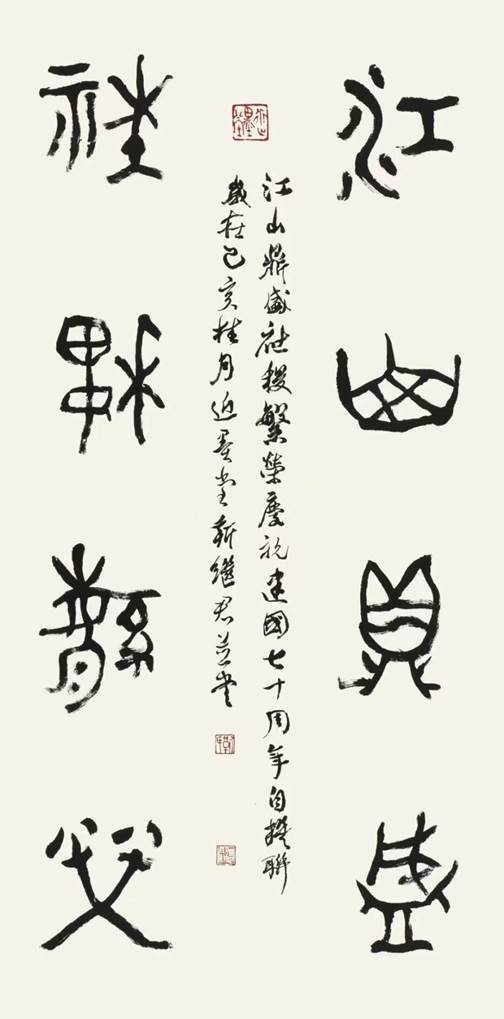 江山鼎盛
江山鼎盛社稷繁榮慶祝建國七十周年自撰聯
歲在己亥桂月近墨堂靳繼君並書
社稷繁榮